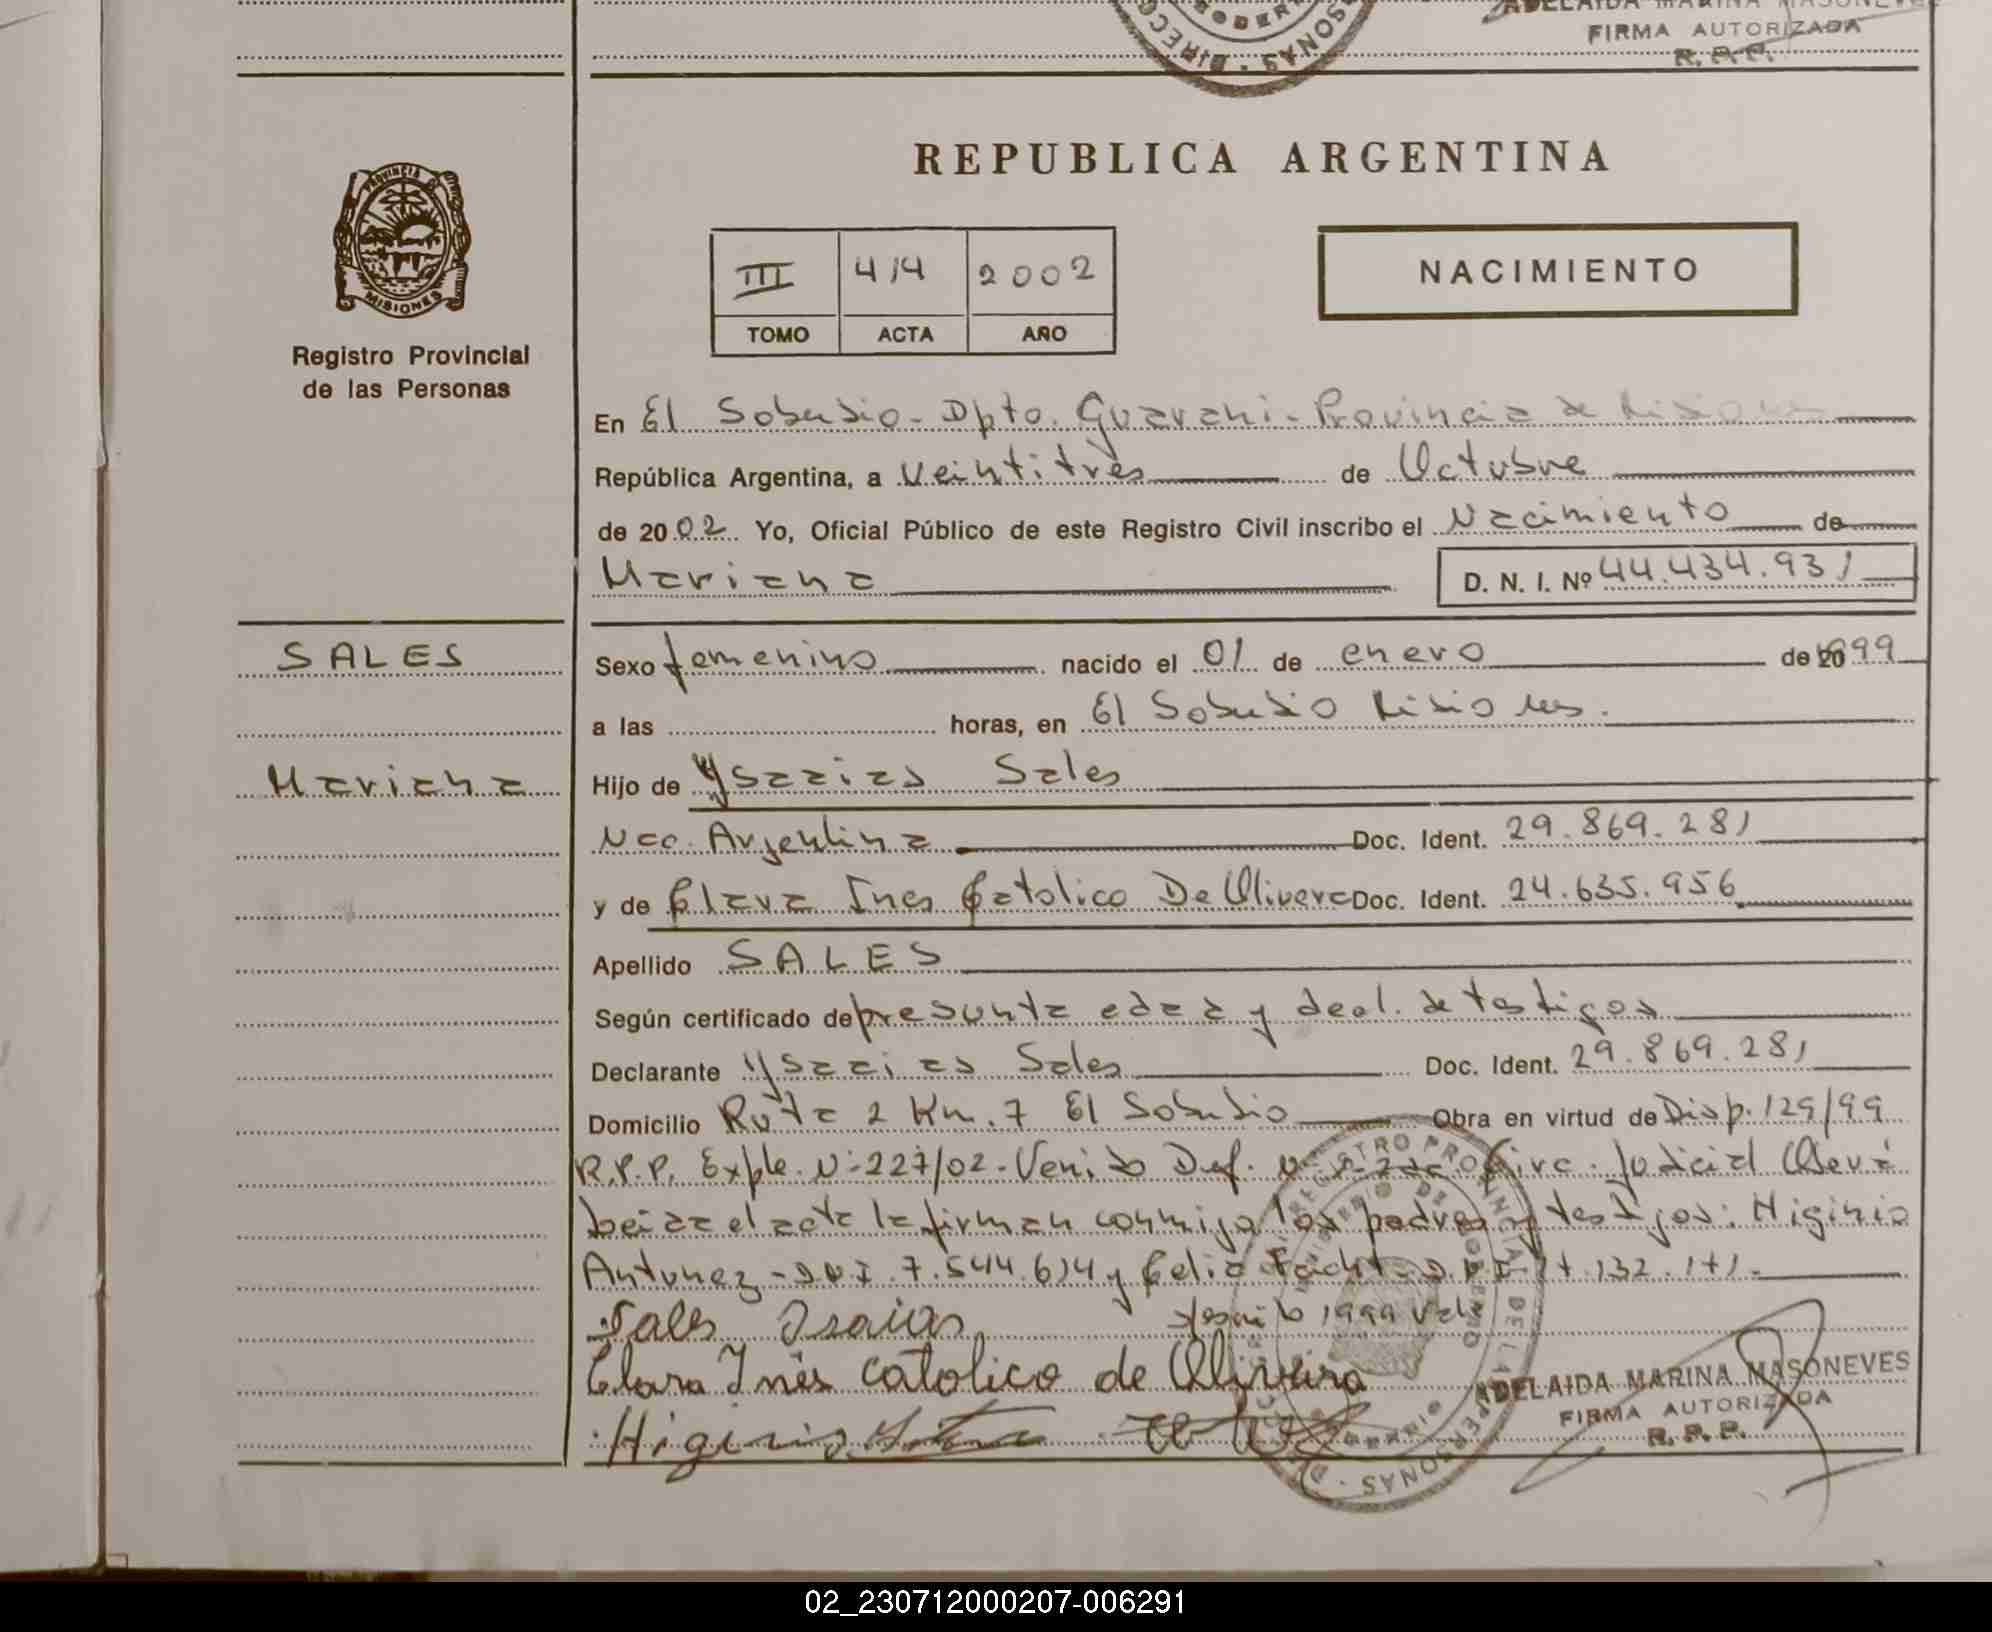 ADELAIDA MARINA MASONEVES
FIRMA AUTORIZADA
R. P. P.
REPUBLICA ARGENTINA
PROVINCIA D
MISIONES
Registro Provincial
de las Personas
III 414 2002
TOMO ACTA AÑO
NACIMIENTO
En El Soberbio - Dpto. Guarani - Provincia de Misiones
República Argentina, a Veintitrès de Octubre
de 2002 Yo, Oficial Público de este Registro Civil inscribo el Nacimiento de
Mariana D. N. I. Nº 44.434.931
SALES
Sexo femenino nacido el 01 de enero de 1999
a las horas, en El Soberbio Misiones.
Mariana
Hijo de Ysaias Sales
Nac. Argentina Doc. Ident. 29.869.281
y de Clara Ines Catolico De Olivera Doc. Ident. 24.635.956
Apellido SALES
Según certificado de presunta edad y decl. de testigos
Declarante Ysaias Sales Doc. Ident. 29.869.281
Domicilio Ruta 2 Km. 7 El Soberbio Obra en virtud de Disp. 129/99
R.P.P. Expte. Nº 227/02 - Venido Def. Circ. Judicial Oberá
Leida el acta la firman conmigo los padres y testigos: Higinio
Antunez - D.N.I. 7.544.614 y Celio
Sales Isaias 1999 Vale
Clara Inês Catolico de Oliveira
Higinio
ADELAIDA MARINA MASONEVES
FIRMA AUTORIZADA
R. P. P.
02_230712000207-006291